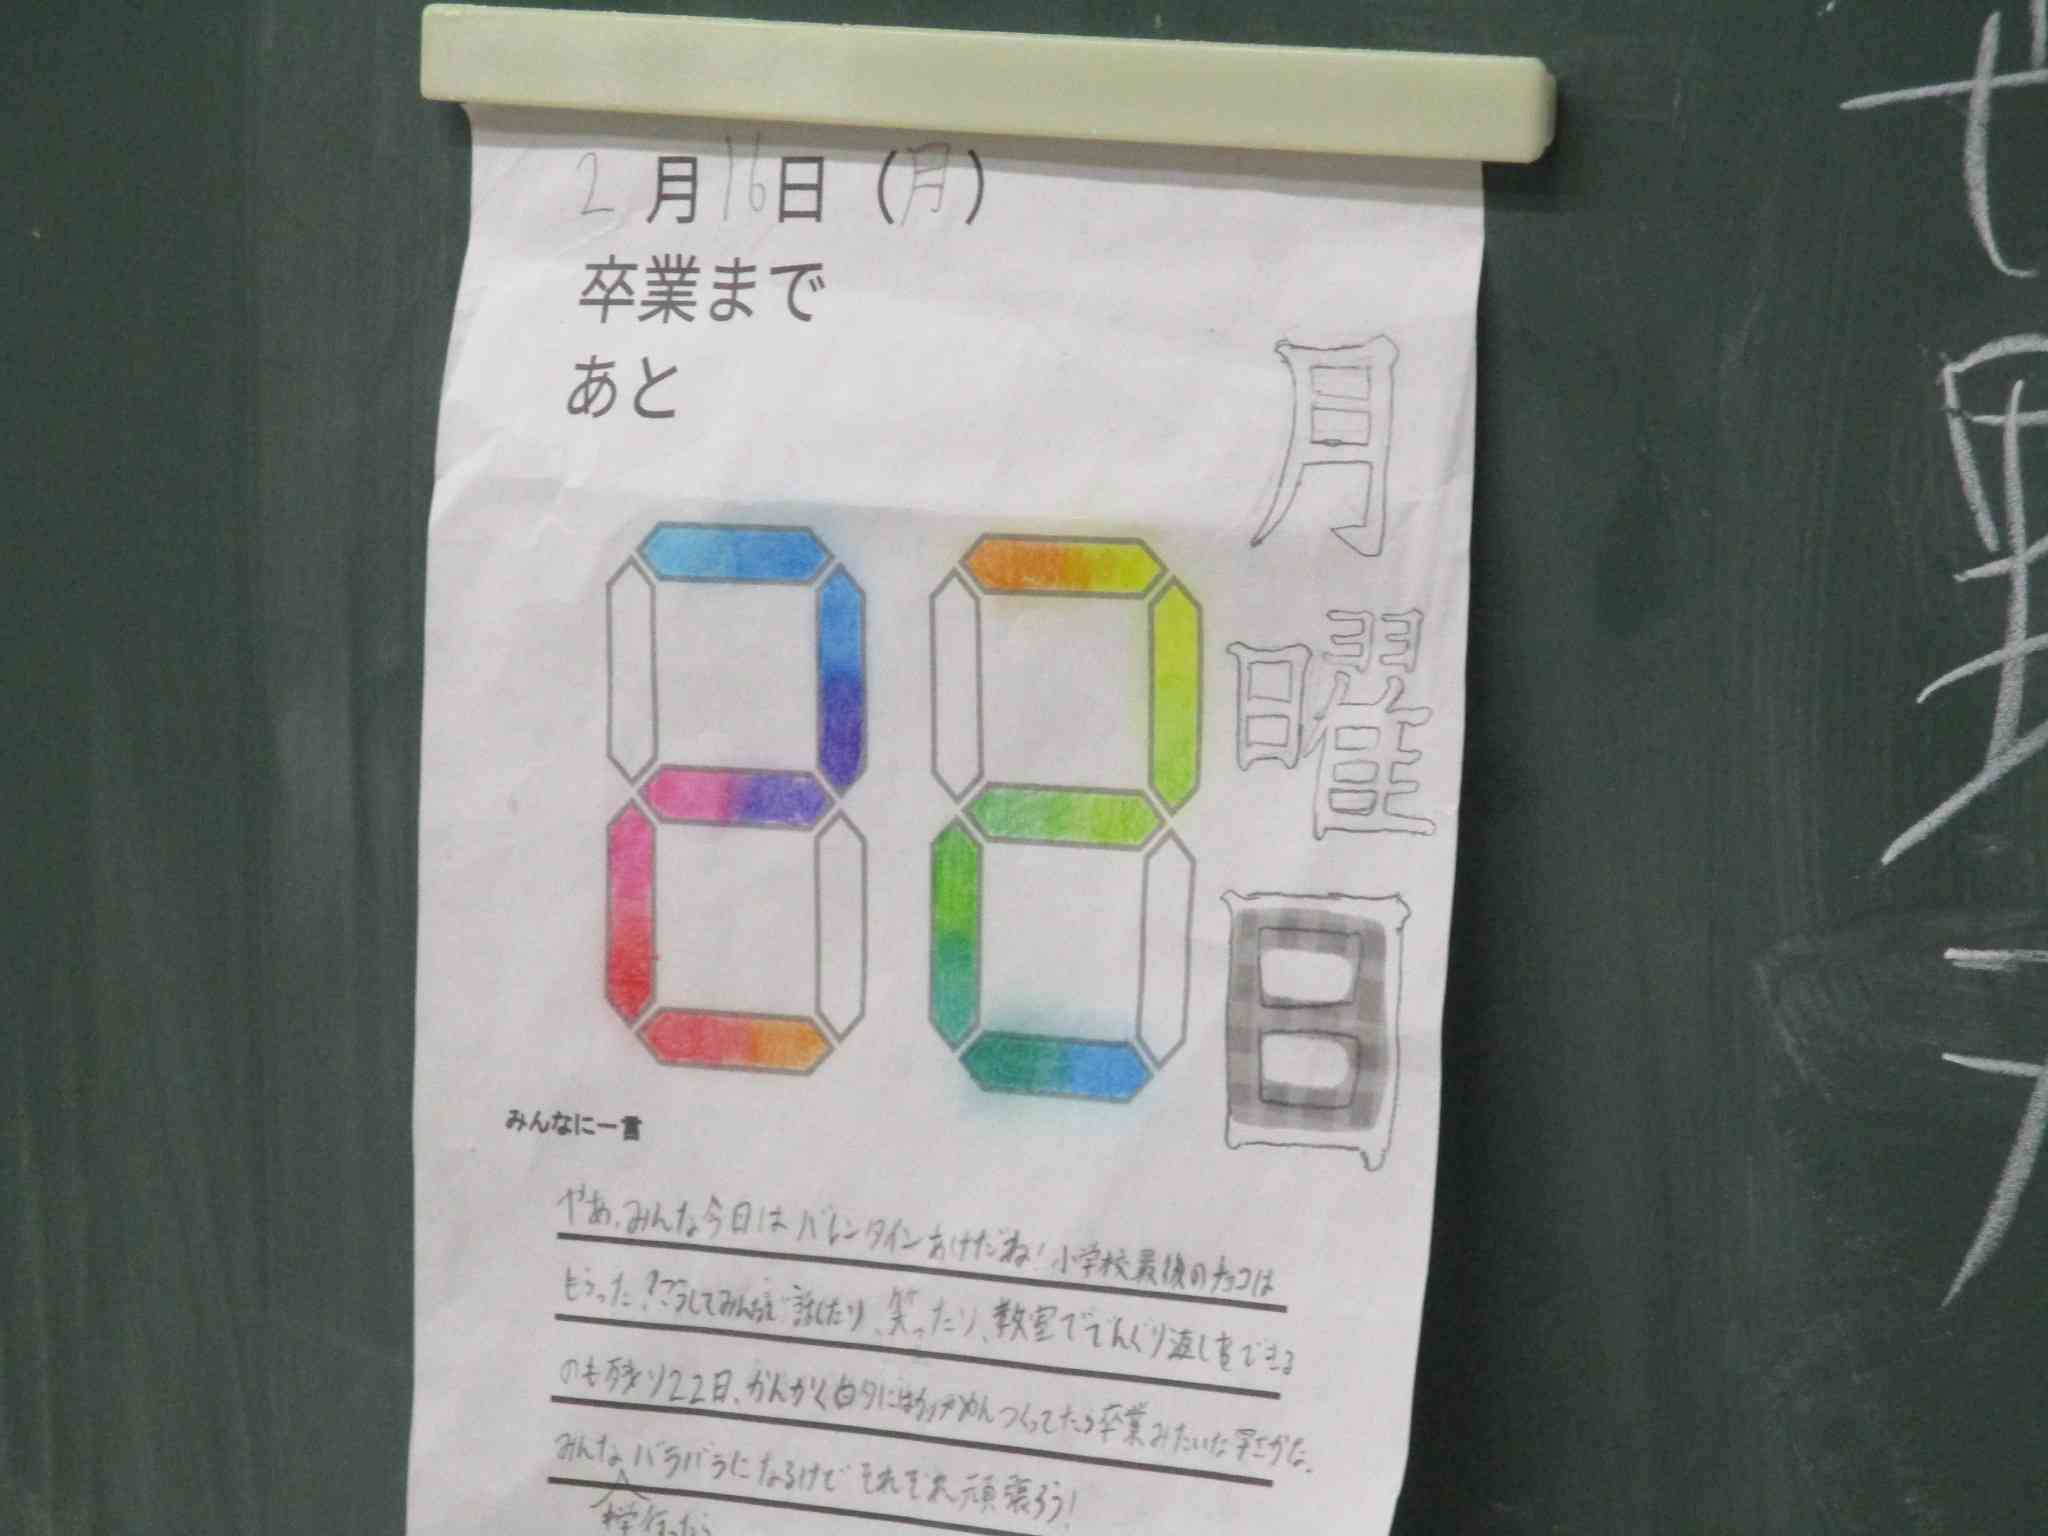 2月16日（月）
卒業まで
あと
22
月曜日
みんなに一言
やあ、みんな今日はバレンタインあけだね！小学校最後のチョコは
もらった！？こうしてみんなで話したり、笑ったり、教室ででんぐり返しをできる
のも残り22日、かんかく的にはカップめんつくってたら卒業みたいな早さかな。
みんなバラバラになるけどそれぞれ頑張ろう！